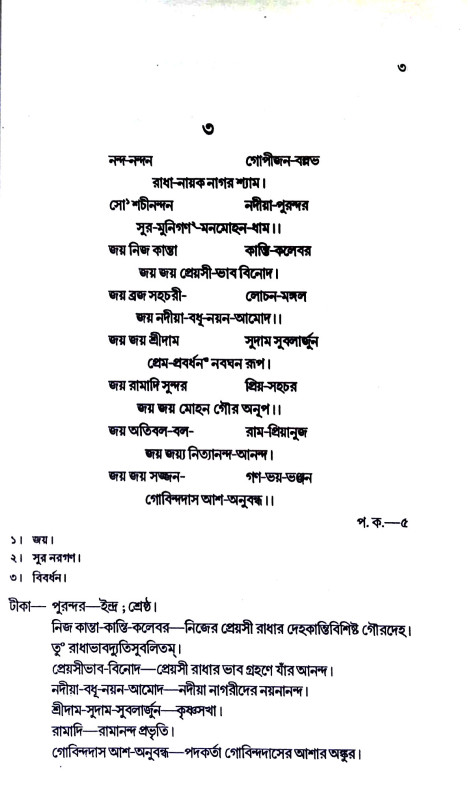 ৩
৩
নন্দ-নন্দন গোপীজন-বল্লভ
রাধা-নায়ক নাগর শ্যাম।
সো১ শচীনন্দন নদীয়া-পুরন্দর
সুর-মুনিগণ২-মনমোহন-ধাম।।
জয় নিজ কান্তা কান্তি-কলেবর
জয় জয় প্রেয়সী-ভাব বিনোদ।
জয় ব্রজ সহচরী- লোচন-মঙ্গল
জয় নদীয়া-বধূ-নয়ন-আমোদ।।
জয় জয় শ্রীদাম সুদাম সুবলার্জুন
প্রেম-প্রবর্ধন৩ নবঘন রূপ।
জয় রামাদি সুন্দর প্রিয়-সহচর
জয় জয় মোহন গৌর অনুপ।।
জয় অতিবল-বল- রাম-প্রিয়ানুজ
জয় জয্য নিত্যানন্দ-আনন্দ।
জয় জয় সজ্জন- গণ-ভয়-ভঞ্জন
গোবিন্দদাস আশ-অনুবন্ধ।।
প. ক.—৫
১। জয়।
২। সুর নরগণ।
৩। বিবর্ধন।
টীকা— পুরন্দর—ইন্দ্র ; শ্রেষ্ঠ।
নিজ কান্তা-কান্তি-কলেবর—নিজের প্রেয়সী রাধার দেহকান্তিবিশিষ্ট গৌরদেহ।
তু° রাধাভাবদ্যুতিসুবলিতম্।
প্রেয়সীভাব-বিনোদ—প্রেয়সী রাধার ভাব গ্রহণে যাঁর আনন্দ।
নদীয়া-বধূ-নয়ন-আমোদ—নদীয়া নাগরীদের নয়নানন্দ।
শ্রীদাম-সুদাম-সুবলার্জুন—কৃষ্ণসখা।
রামাদি—রামানন্দ প্রভৃতি।
গোবিন্দদাস আশ-অনুবন্ধ—পদকর্তা গোবিন্দদাসের আশার অঙ্কুর।